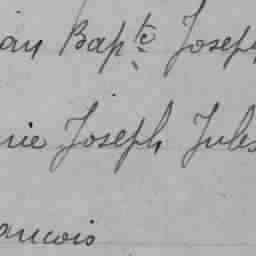 ean Bapte Joseph
rie Joseph Jules
ancois